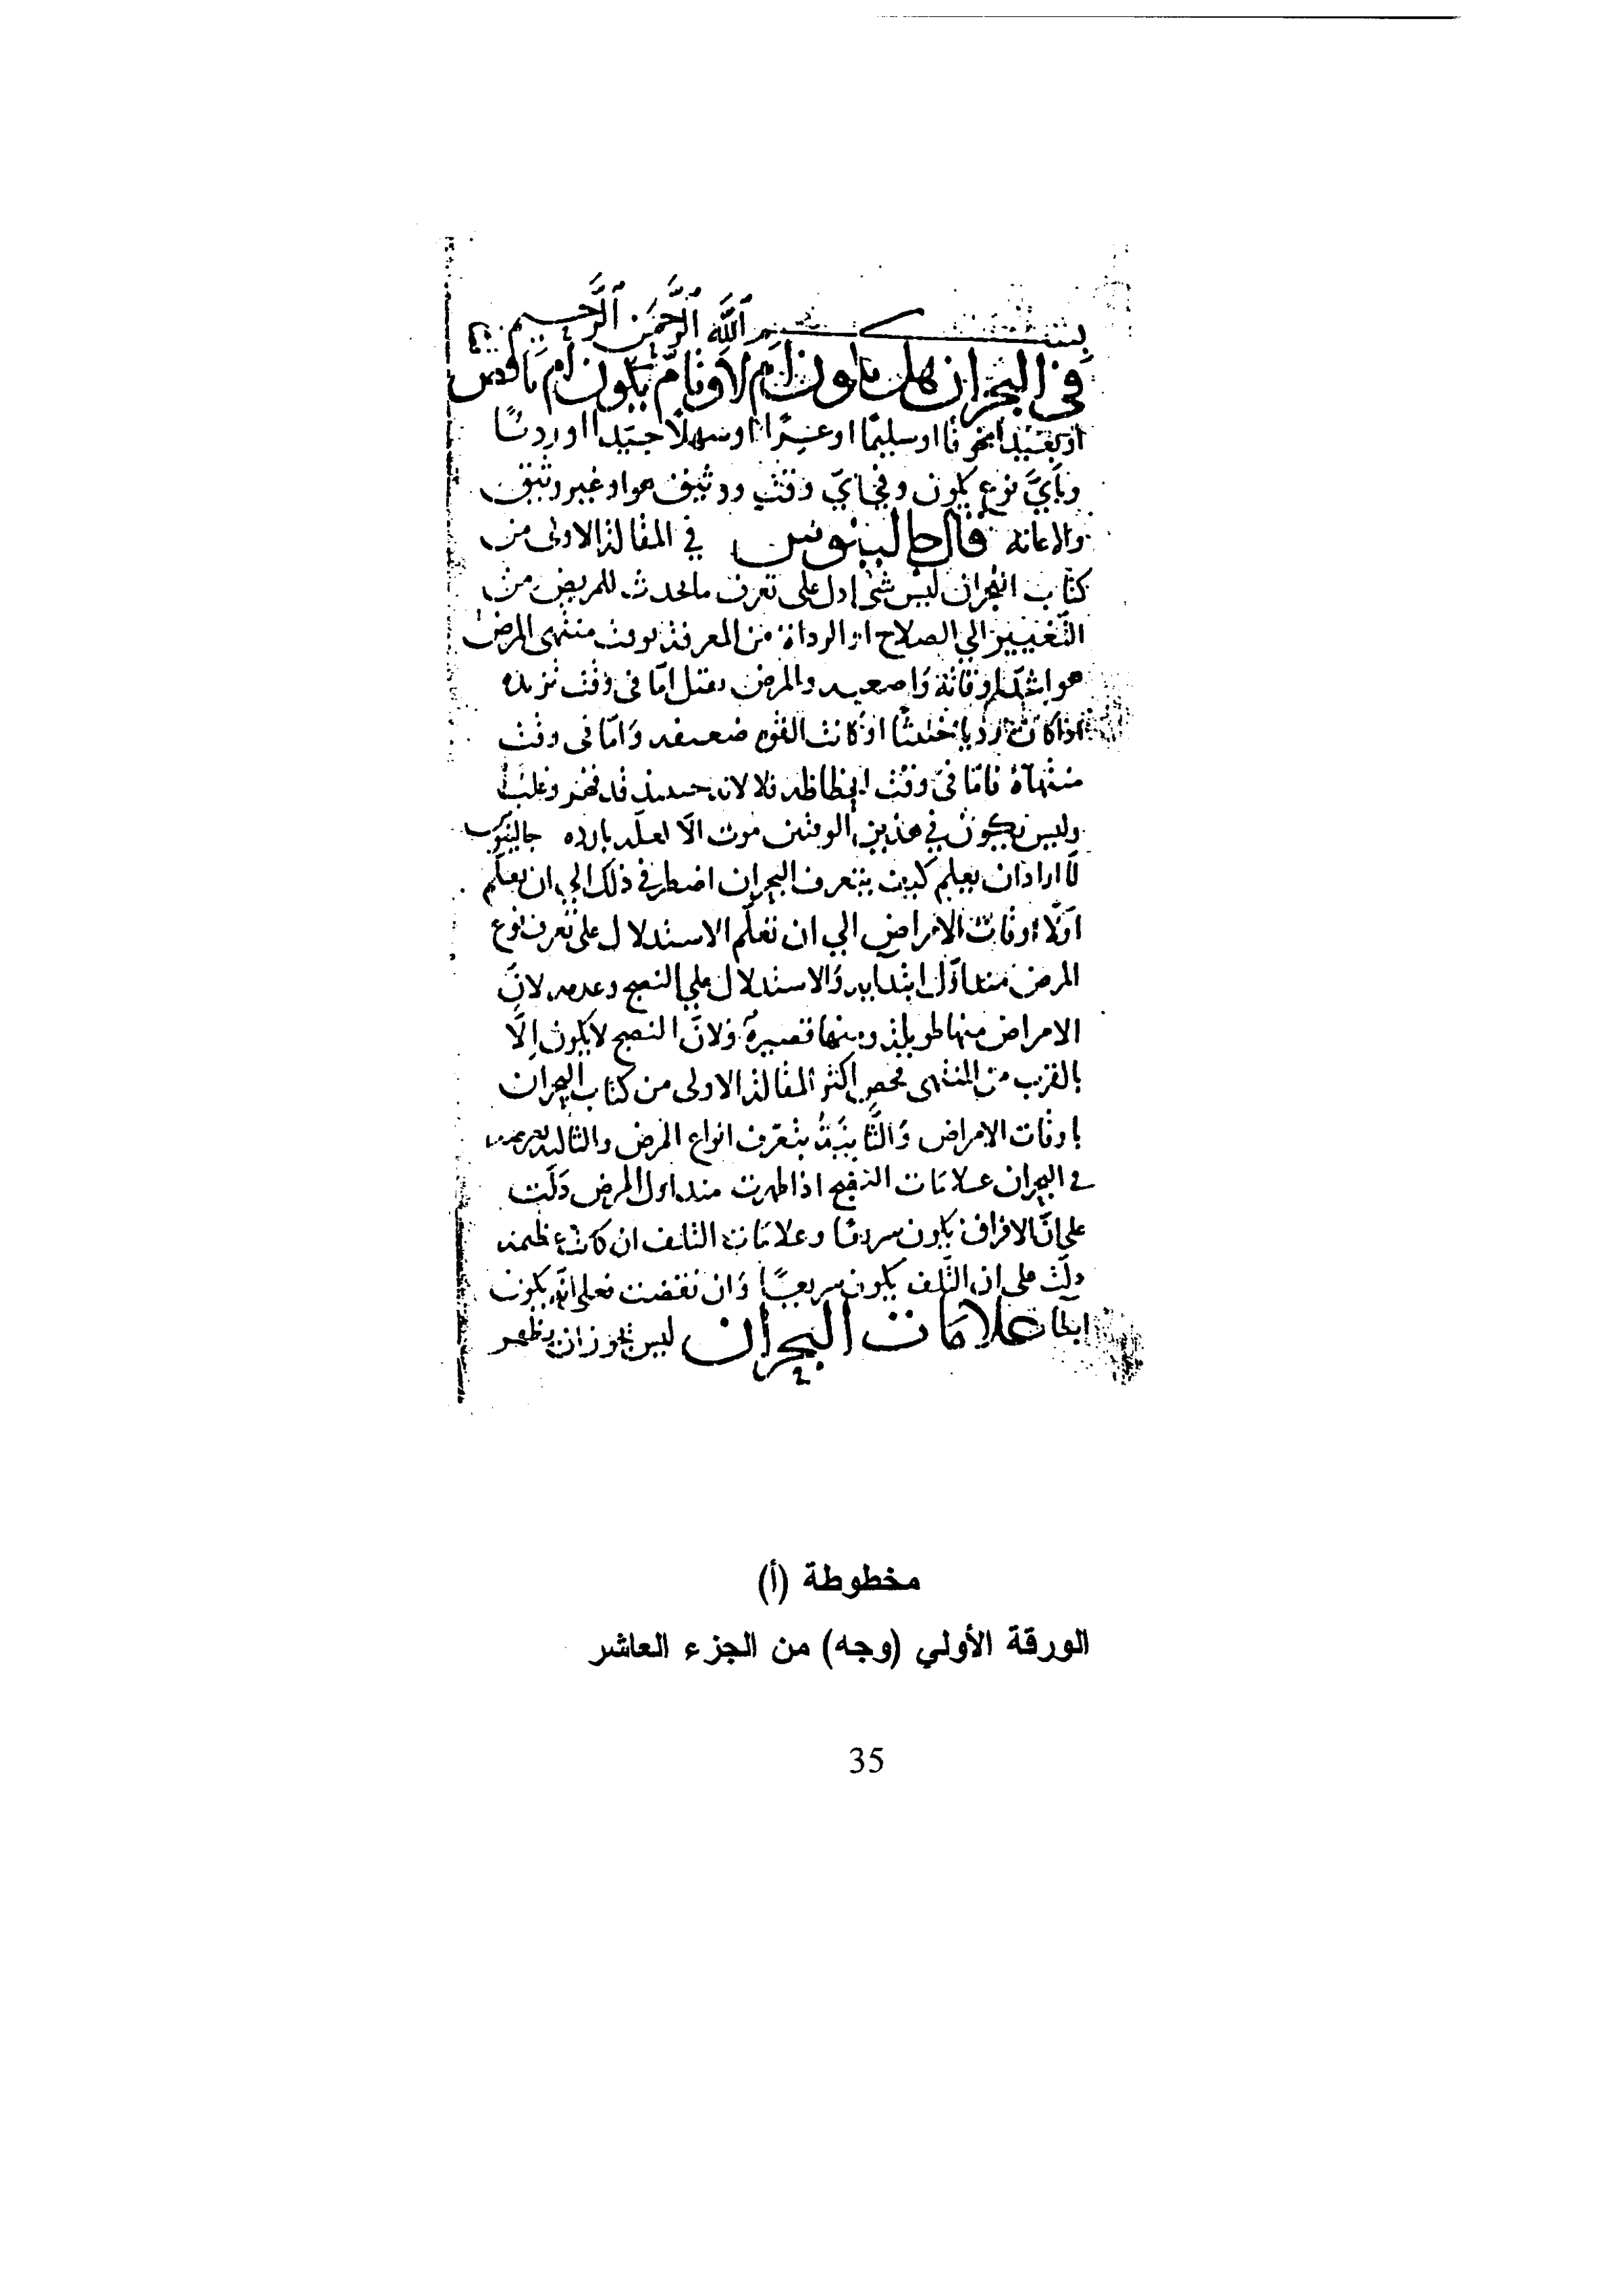 بسم الله الرحمن الرحيم
في البحران هل يكون ام لا وتام يكون ام ناقص
او سليما او عسرا او سهلا جيدا او رديا
وبأي نوع يكون وفي اي وقت ووثيق هو او غير وثيق
قال جالينوس في المقالة الاولى من
كتاب البحران ليس شئ ادل على تعرف ما يحدث للمريض من
التغيير الي الصلاح او الرداة من المعرفة بوقت منتهى المرض
هو اشد اوقاته واصعبه والمرض يقتل اما في وقت تزيده
اذا كان رديا خبيثا او كانت القوة ضعيفه واما في وقت
منتهاه فاما في وقت انحطاطه فلا لانه حينيذ قد قهر وغلب
وليس يكون في هذين الوقتين موت الا لعلة بارده جالينوس
لما اراد ان يعلم كيف يتعرف البحران اضطر في ذلك الي ان يعلم
اولا اوقات الامراض الي ان تعلم الاستدلال على تعرف نوع
المرض منذ اول ابتدايه والاستدلال علي النضج وعدمه لان
الامراض منها طويلة ومنها قصيرة ولان النضج لا يكون الا
بالقرب من المنتهى فحص اكثر المقالة الاولى من كتاب البحران
باوقات الامراض والثانية بتعرف انواع المرض والثالثة
في البحران علامات النضج اذا ظهرت منذ اول المرض دلت
على ان الافراق يكون سريعا وعلامات التلف ان كانت عظيمة
دلت على ان التلف يكون سريعا وان نقصت فعلى انه يكون
ابطا علامات البحران ليس يجوز ان يظهر
مخطوطة (أ)
الورقة الأولي (وجه) من الجزء العاشر
35